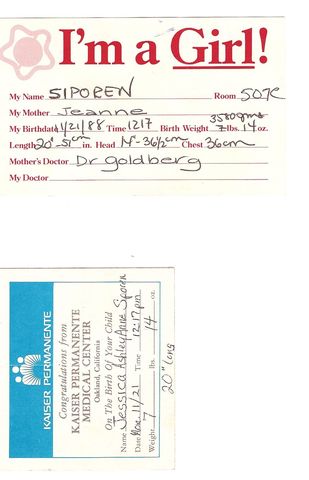 I'm a Girl!
My Name SIPOREN Room 507C
My Mother Jeanne
My Birthdate 11/21/88 Time 1217 Birth Weight 3580gms 7 lbs. 14 oz.
Length 20"-51cm in. Head 14"-36½cm Chest 36cm
Mother's Doctor Dr Goldberg
My Doctor
KAISER PERMANENTE
Congratulations from
KAISER PERMANENTE
MEDICAL CENTER
Oakland, California
On The Birth Of Your Child
Name Jessica Ashley Anne Siporen
Date Nov. 11/21 Time 12:17 pm
Weight 7 lbs. 14 oz.
20" long